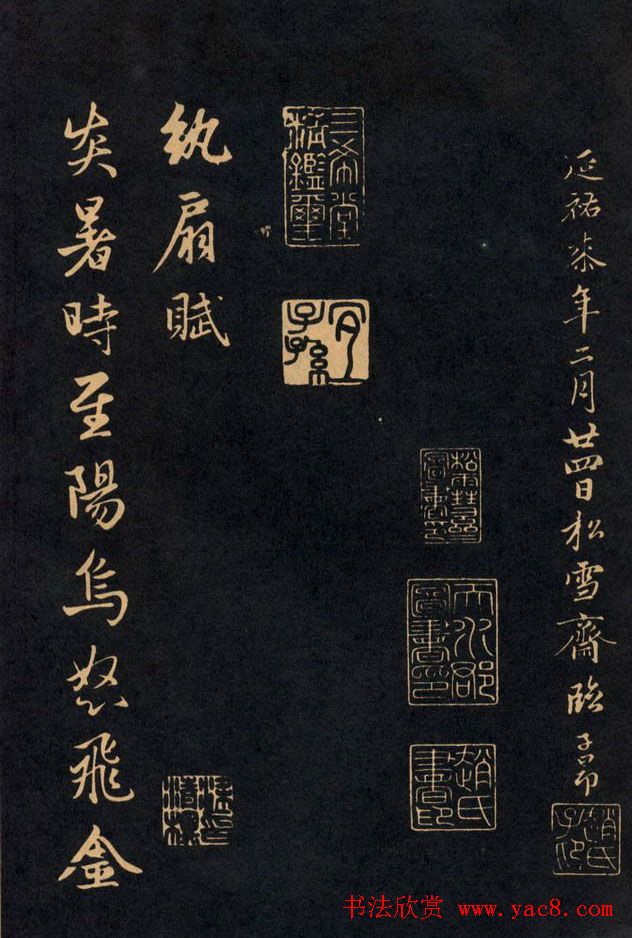 延祐柒年二月廿四日松雪齋臨子昂
趙氏子昂
松雪齋圖書印
天水郡圖書印
趙氏書印
三希堂精鑑璽
宜子孫
紈扇賦
炎暑時至陽烏怒飛金
书法欣赏 www.yac8.com